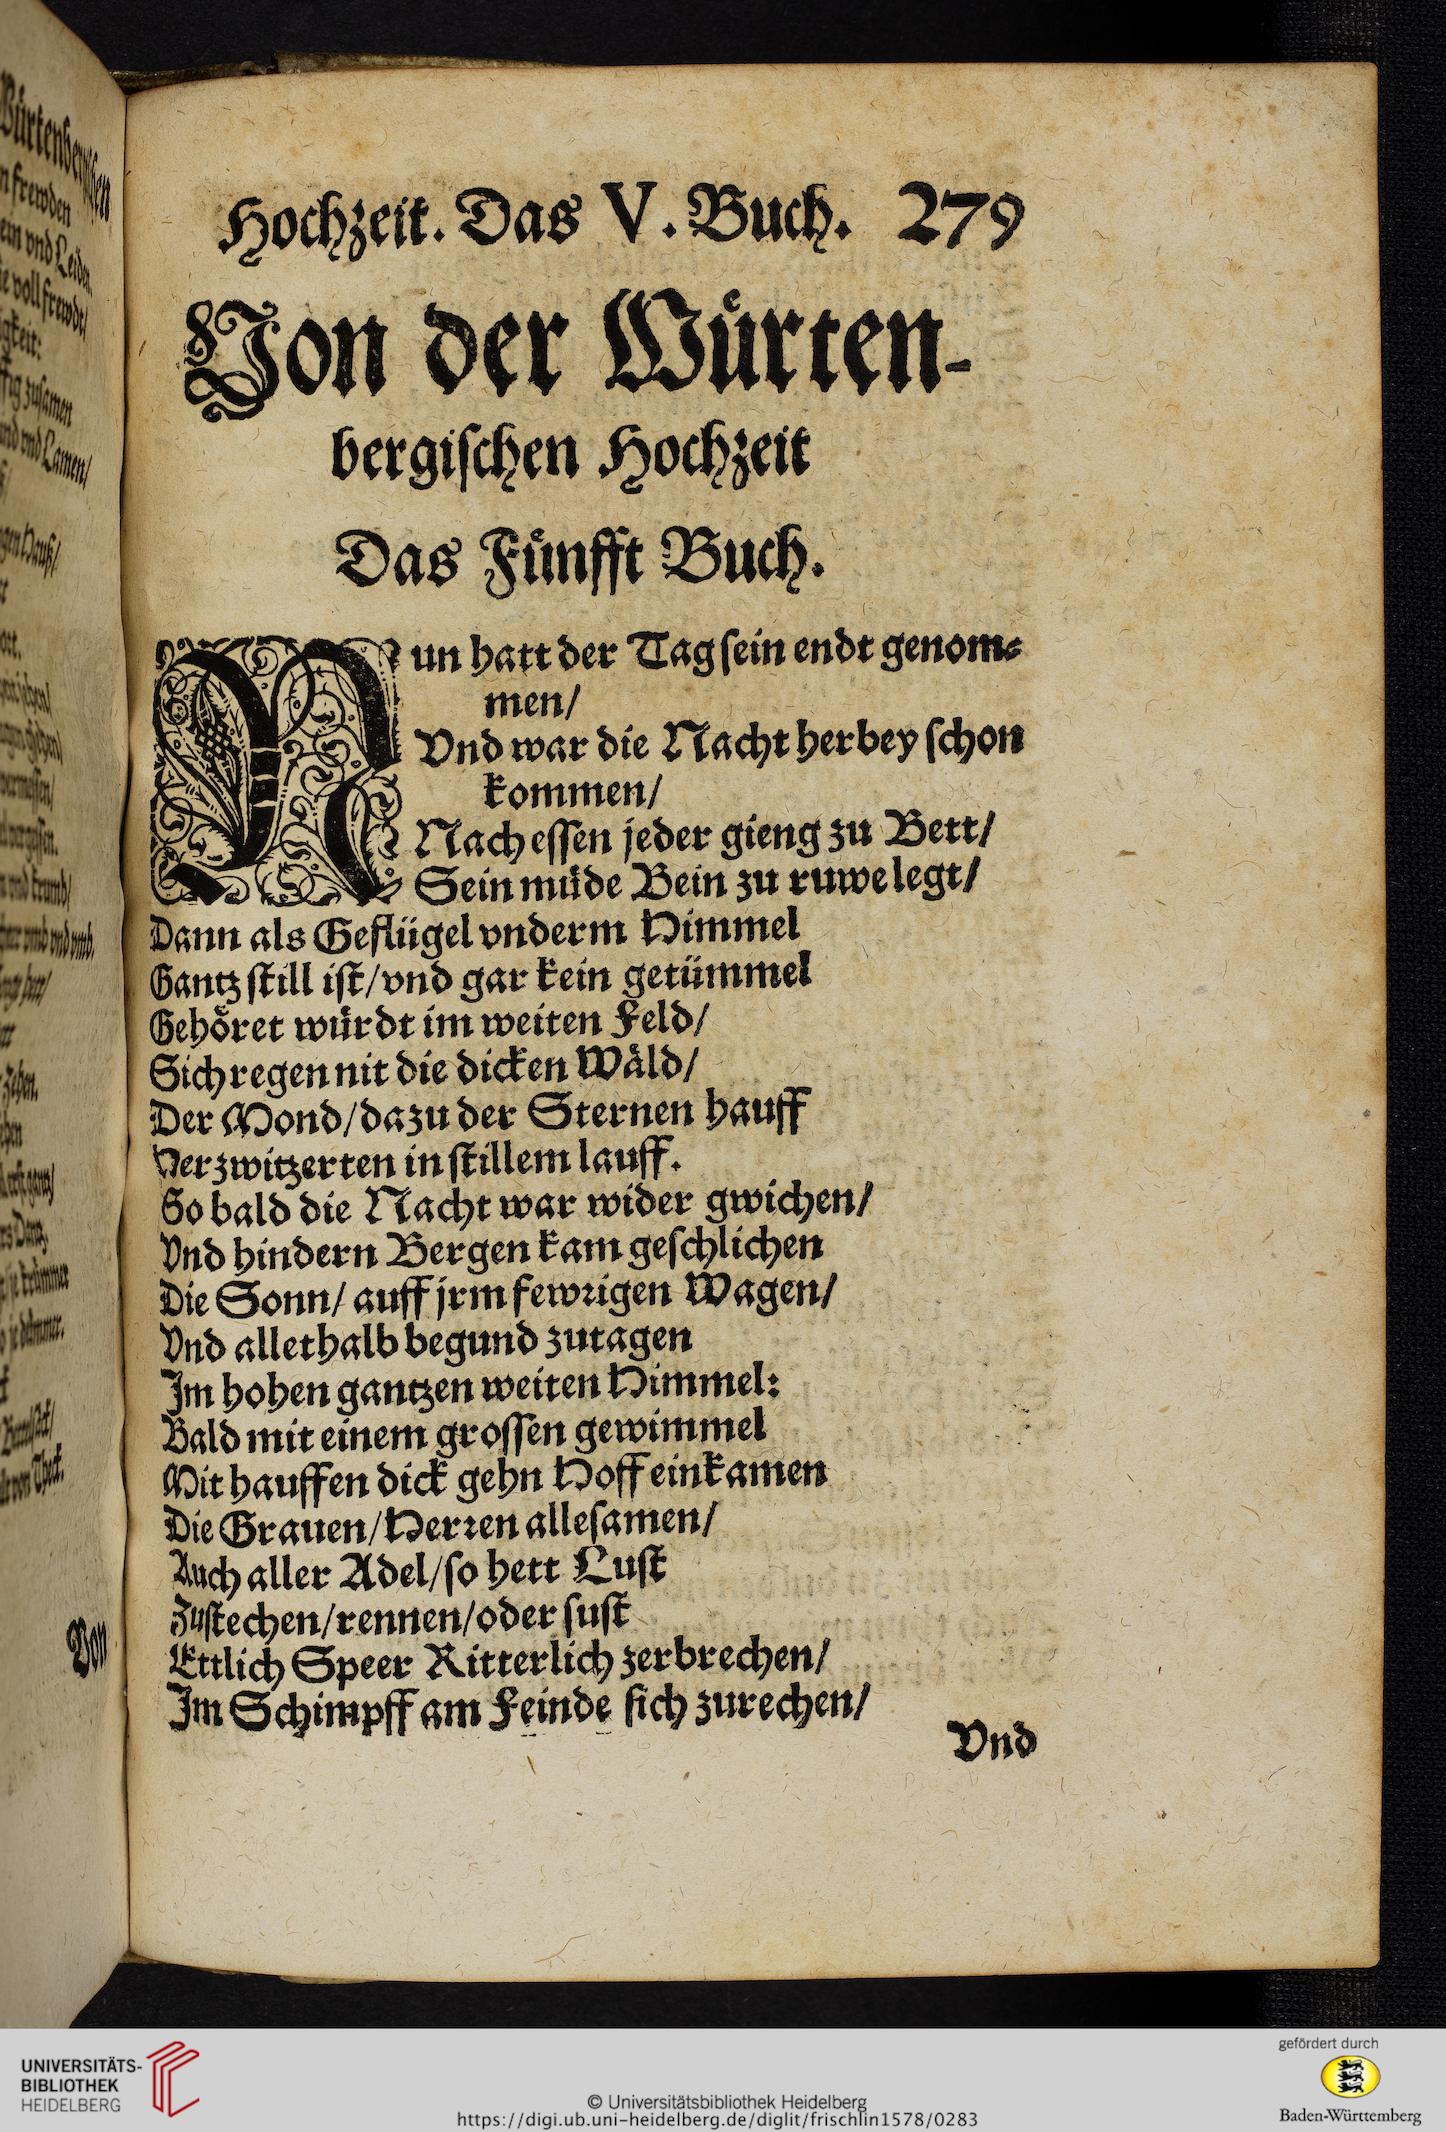 Hochzeit. Das V. Buch. 279
Von der Wuͤrten-
bergiſchen Hochzeit
Das Fuͤnfft Buch.
Nun hatt der Tag ſein endt genom⸗
men/
Vnd war die Nacht herbey ſchon
kommen/
Nach eſſen jeder gieng zu Bett/
Sein muͤde Bein zu ruwe legt/
Dann als Gefluͤgel vnderm Himmel
Gantz ſtill iſt/vnd gar kein getuͤmmel
Gehoͤret wuͤrdt im weiten Feld/
Sich regen nit die dicken Waͤld/
Der Mond/dazu der Sternen hauff
Herzwitzerten in ſtillem lauff.
So bald die Nacht war wider gwichen/
Vnd hindern Bergen kam geſchlichen
Die Sonn/ auff jrm fewꝛigen Wagen/
Vnd allethalb begund zutagen
Im hohen gantzen weiten Himmel:
Bald mit einem groſſen gewimmel
Mit hauffen dick gehn Hoff einkamen
Die Grauen/Herꝛen alleſamen/
Auch aller Adel/ſo hett Luſt
Zuſtechen/rennen/oder ſuſt
Ettlich Speer Ritterlich zerbrechen/
Im Schimpff am Feinde ſich zurechen/
Vnd
Von
UNIVERSITÄTS-
BIBLIOTHEK
HEIDELBERG
© Universitätsbibliothek Heidelberg
https://digi.ub.uni-heidelberg.de/diglit/frischlin1578/0283
gefördert durch
Baden-Württemberg